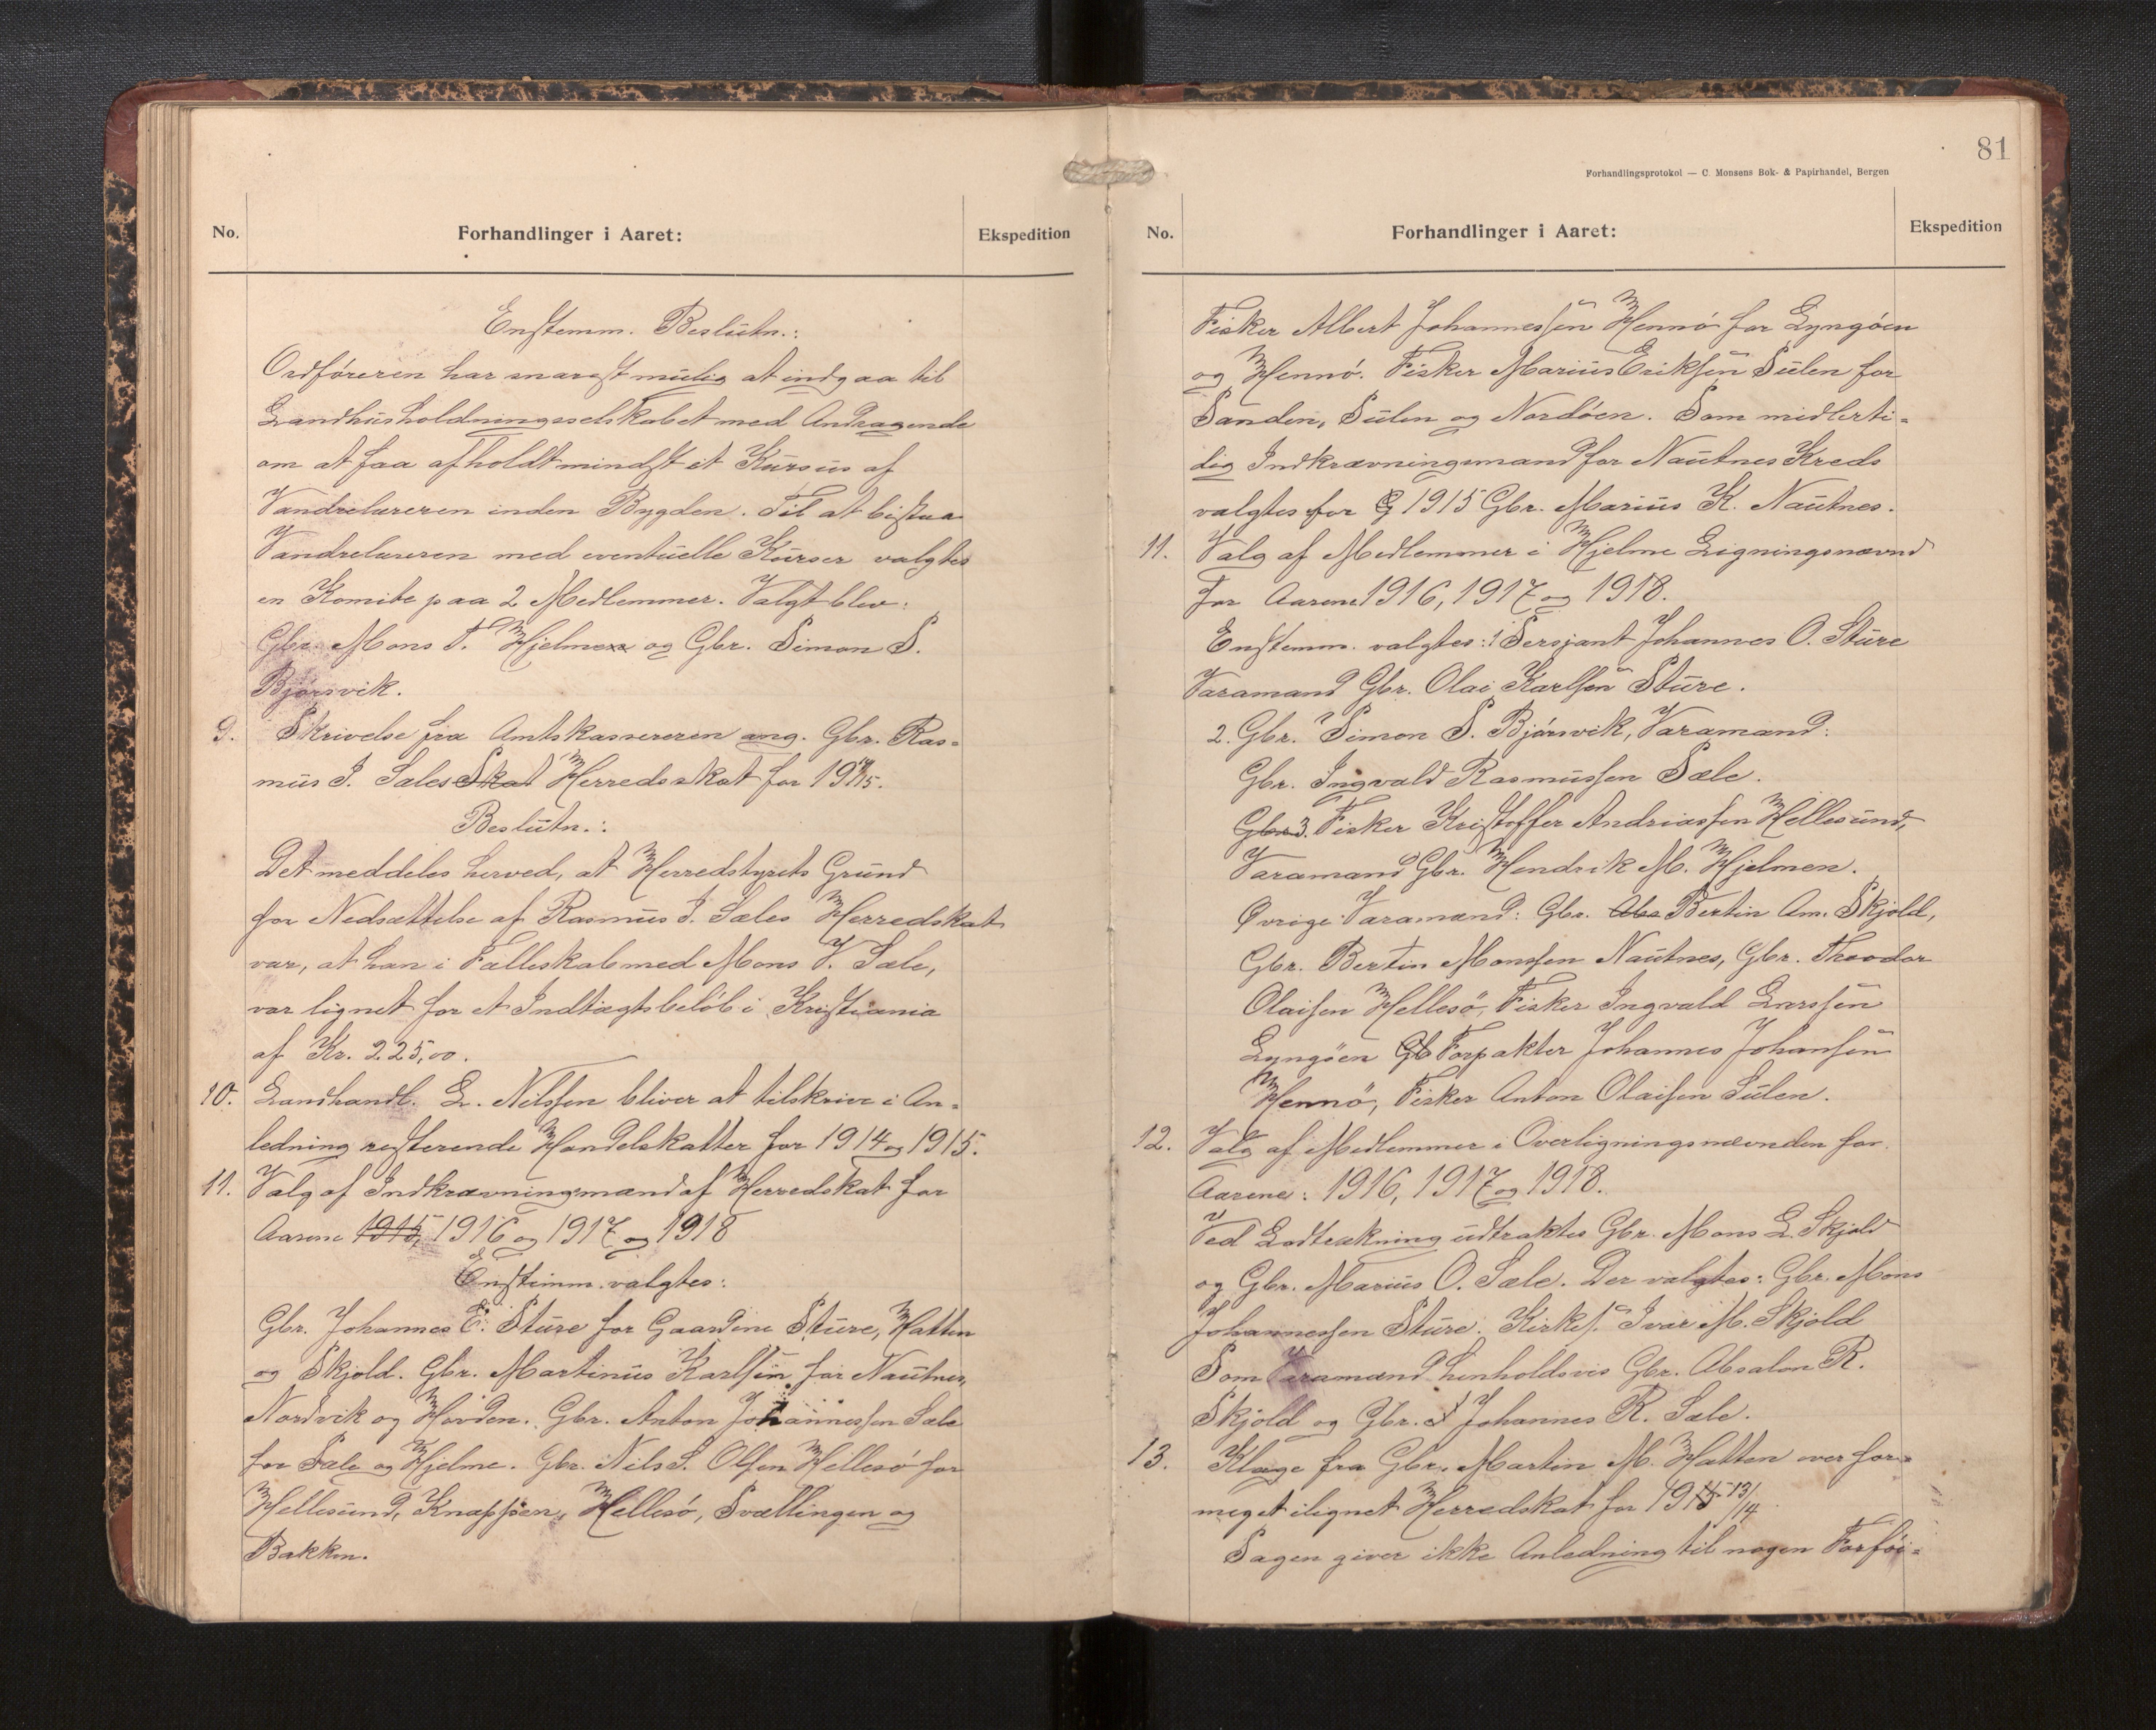 No.
Forhandlinger i Aaret:
Ekspedition
Enstemm. Beslutn.:
Ordføreren har snarest mulig at indgaa til
Landhusholdningsselskabet med Andragende
om at faa afholdt mindst et Kursus af
Vandrelæreren inden Bygden. Til at bistaa
Vandrelæreren med eventuelle Kurser valgtes
en Komite paa 2 Medlemmer. Valgt blev:
Gbr. Mons T. Hjelmen og Gbr. Simon S.
Bjørsvik.
9. Skrivelse fra Amtskassereren ang. Gbr. Ras-
mus J. Sæles Skat Herredsskat for 1914/15.
Beslutn.:
Det meddeles herved, at Herredstyrets Grund
for Nedsættelse af Rasmus J. Sæles Herredskat
var, at han i Fælleskab med Mons V. Sæle,
var lignet for et Indtægtsbeløb i Kristiania
af Kr. 225,00.
10. Landhandl. L. Nilssen bliver at tilskrive i An-
ledning resterende Handelskatter for 1914 og 1915.
11. Valg af Indkrævningsmænd af Herredskat for
Aarene 1915, 1916 og 1917 og 1918
Enstemm. valgtes:
Gbr. Johannes E. Sture for Gaardene Sture, Hatten
og Skjold. Gbr. Martinus Karlsen for Nautnes,
Nordvik og Horden. Gbr. Anton Johannessen Sæle
for Sæle og Hjelme. Gbr. Nils S. Olsen Hellesø for
Hellesund, Knappøen, Hellesø, Svællingen og
Bakken.
81
Forhandlingsprotokol — C. Monsens Bok- & Papirhandel, Bergen
No.
Forhandlinger i Aaret:
Ekspedition
Fisker Albert Johannessen Hennø for Lyngøen
og Hennø. Fisker Marius Eriksen Sulen for
Sanden, Sulen og Nordøen. Som midlerti-
dig Indkrævningsmand for Nautnes Kreds
valgtes for G 1915 Gbr. Marius K. Nautnes.
11. Valg af Medlemmer i Hjelme Ligningsnævnd
for Aarene 1916, 1917 og 1918.
Enstemm. valgtes: 1 Sersjant Johannes O. Sture
Varamand Gbr. Olai Karlsen Sture.
2. Gbr. Simon S. Bjørsvik, Varamand:
Gbr. Ingvald Rasmussen Sæle.
Gbr. 3. Fisker Kristoffer Andriassen Hellesund,
Varamand Gbr. Hendrik M. Hjelmen.
Øvrige Varamænd: Gbr. Abs Bertin Am. Skjold,
Gbr. Bertin Monssen Nautnes, Gbr. Theodor
Olaisen Hellesö, Fisker Ingvald Larssen
Lyngöen Gb Forpakter Johannes Johansen
Hennö, Fisker Anton Olaisen Sulen.
12. Valg af Medlemmer i Overligningsnævnden for
Aarene: 1916, 1917 og 1918.
Ved Lodtrækning udtraktes Gbr. Mons L. Skjold
og Gbr. Marius O. Sæle. Der valgtes: Gbr. Mons
Johannessen Sture. Kirkes. Ivar M. Skjold
Som Varamænd henholdsvis Gbr. Absalon R.
Skjold og Gbr. Johannes R. Sæle.
13. Klage fra Gbr. Martin M. Hatten over for-
meget ilignet Herredskat for 1913/14.
Sagen giver ikke Anledning til nogen Forföi-